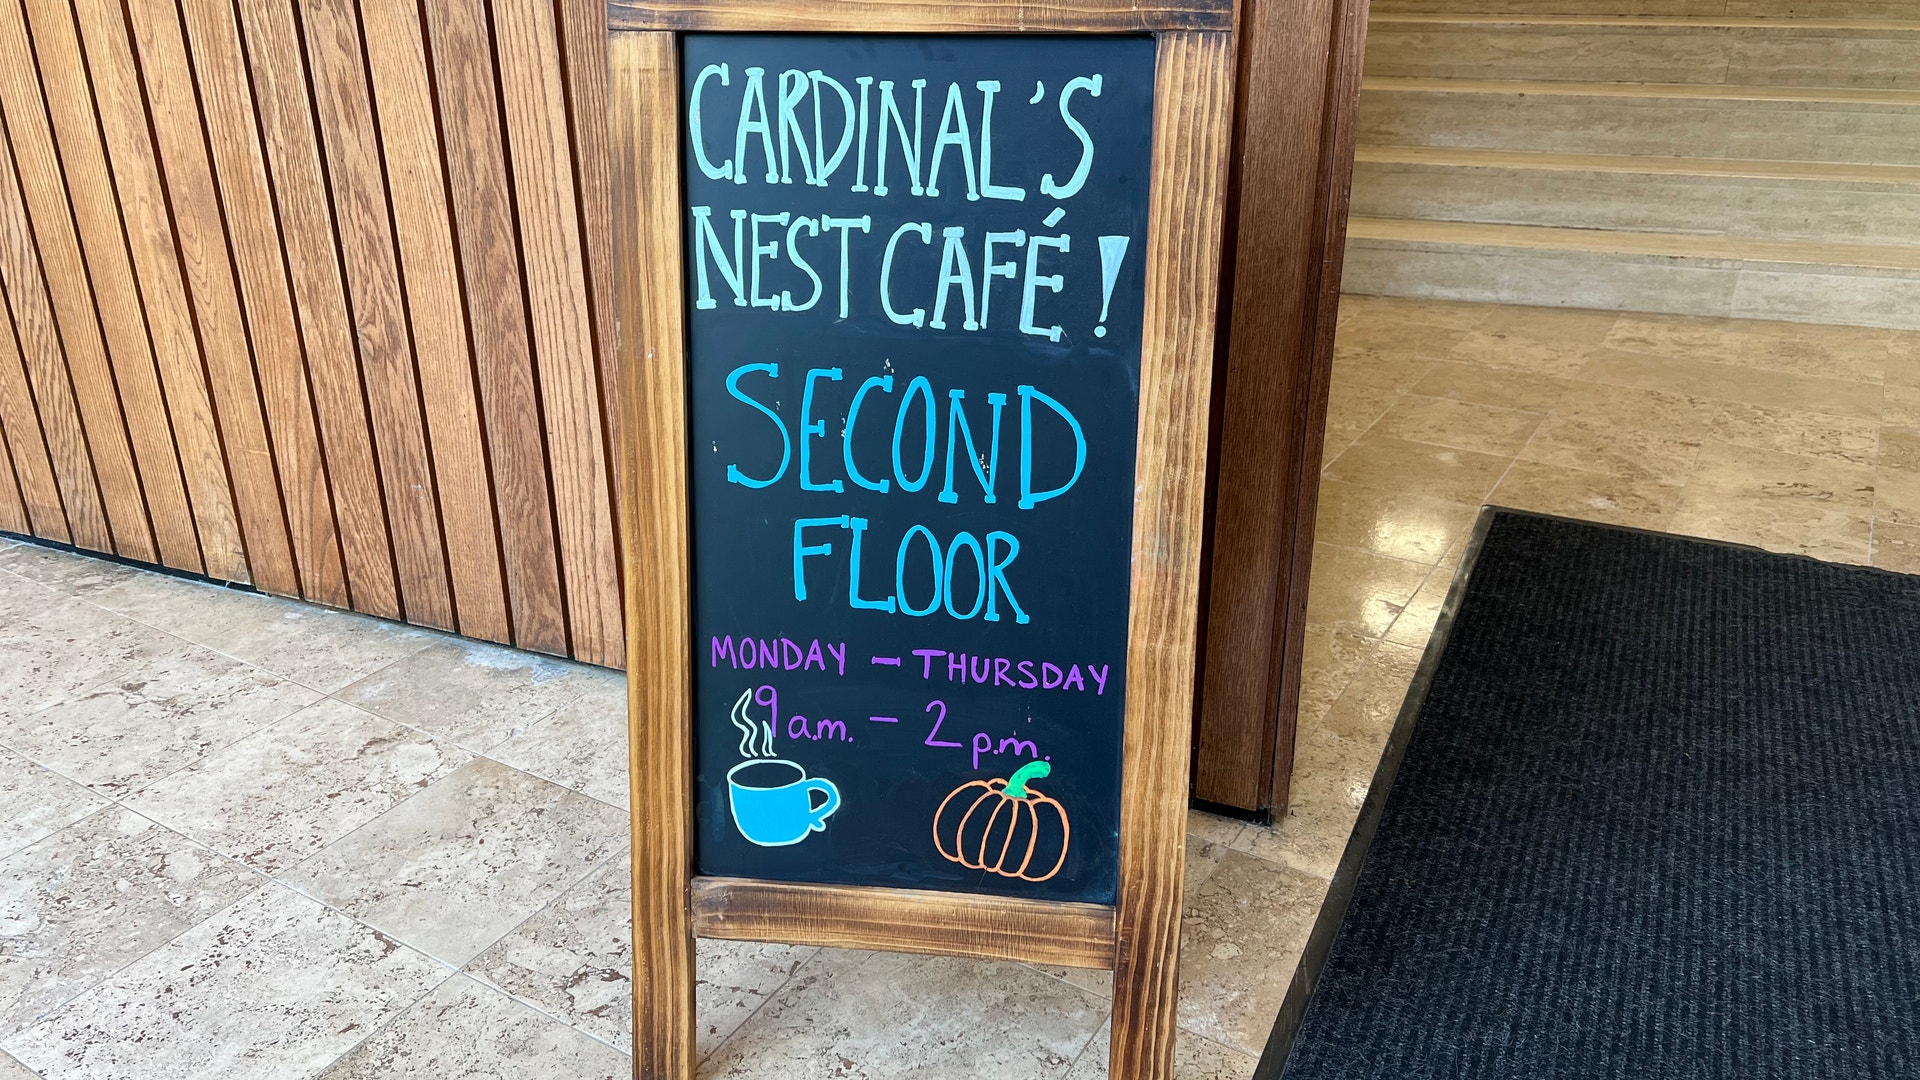 CARDINAL'S
NEST CAFÉ!
SECOND
FLOOR
MONDAY – THURSDAY
9 a.m. – 2 p.m.